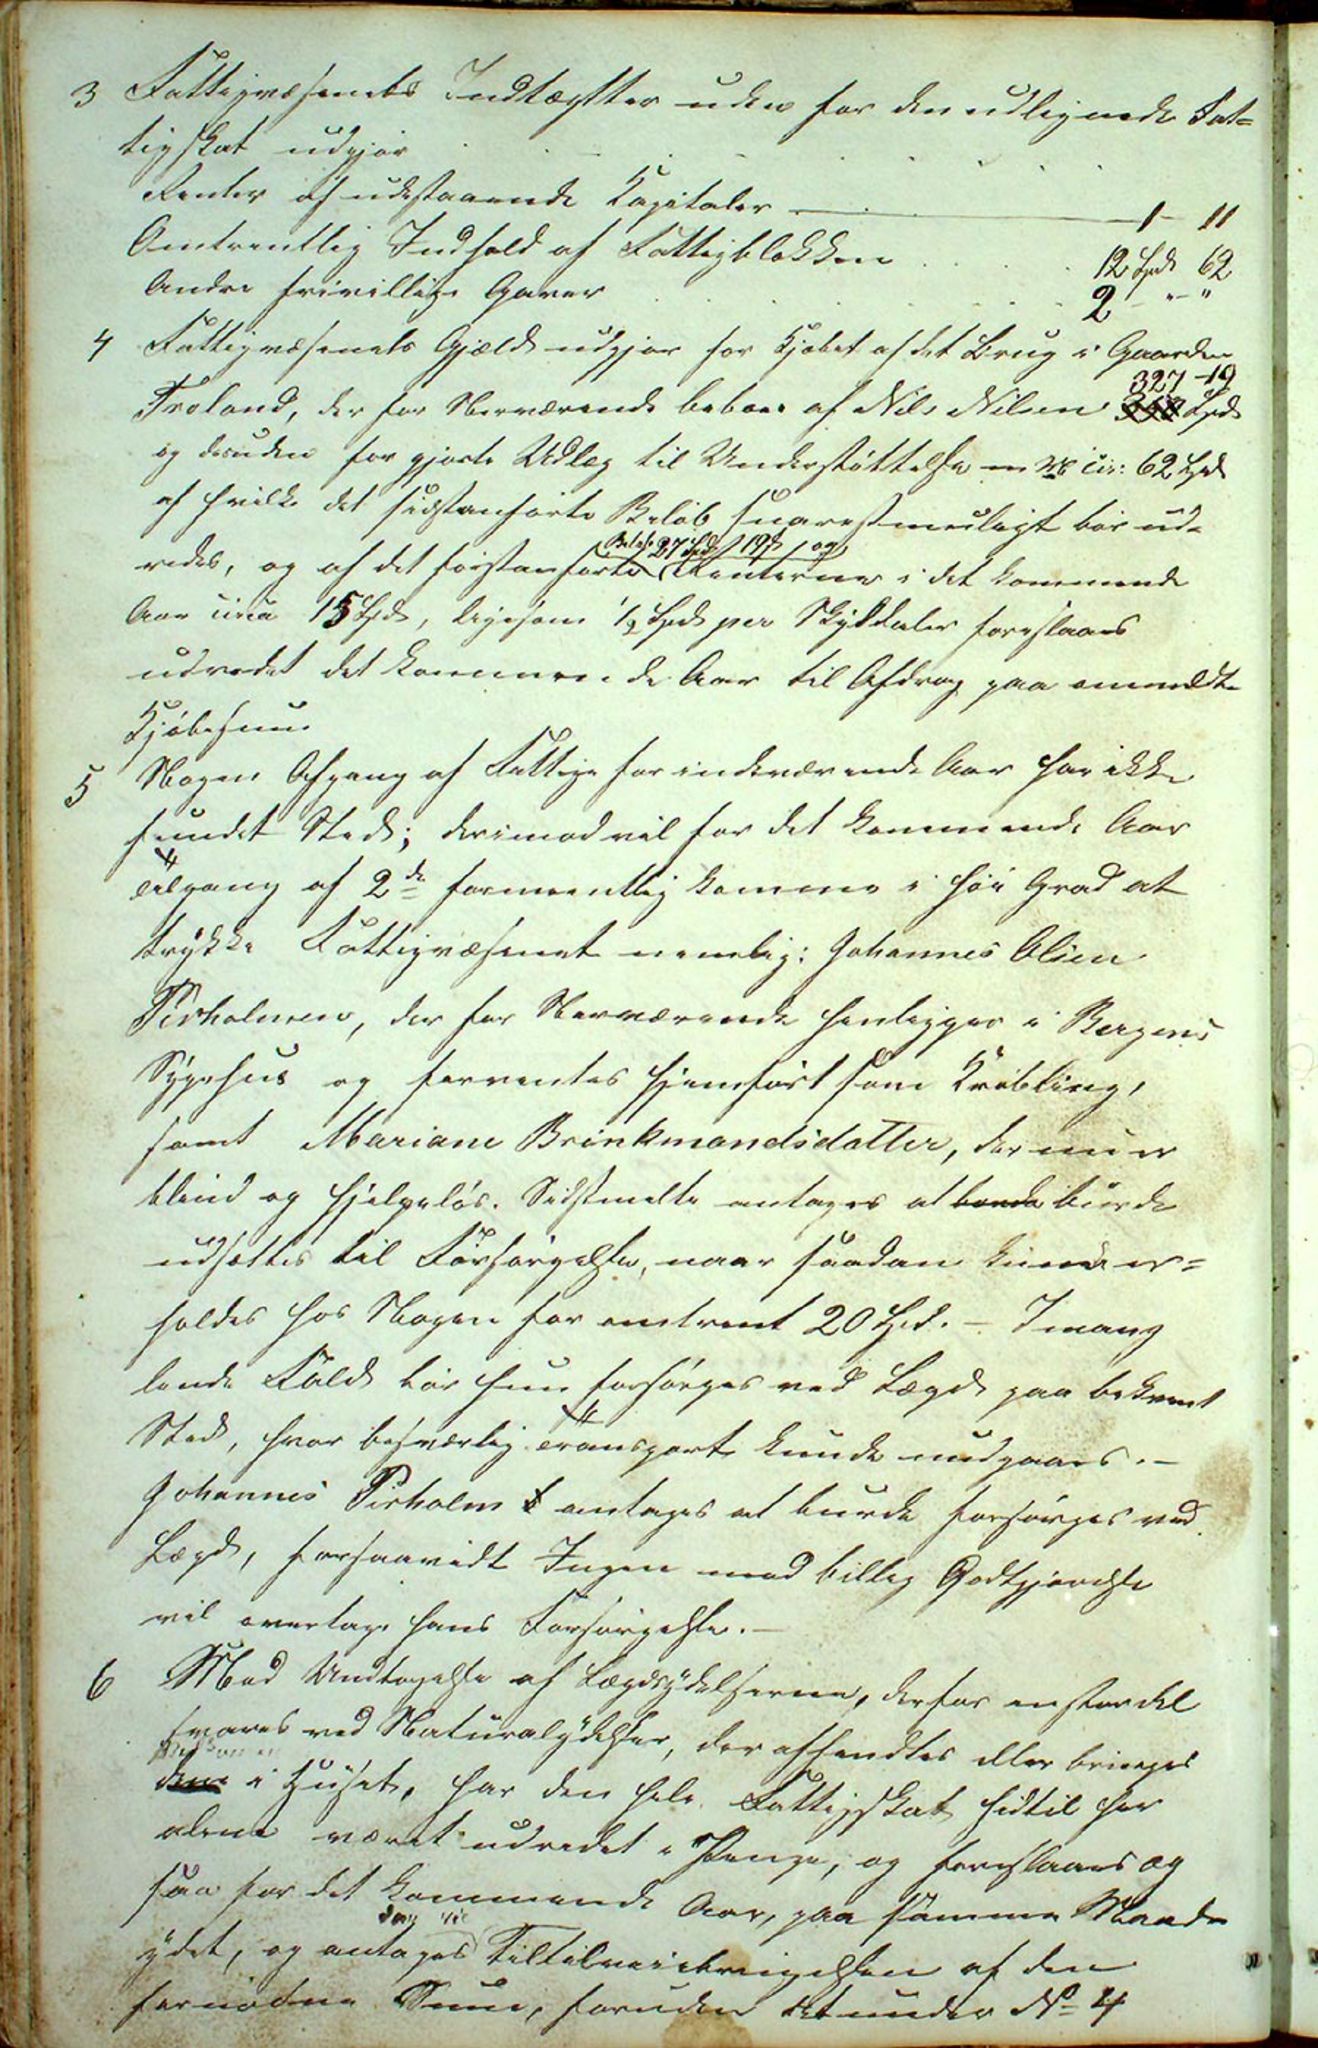 3 Fattigvæsenets Indtægtter uden for den udlignede Fat-
tigskat udgjør
Renter af udestaaende Kapitaler — 1 11
Omtrentlig Indhold af Fattigblokken . . . 12 Spd 62
Andre frivillige Gaver . . . 2 - " - "
4 Fattigvæsenets Gjæld udgjør for Kjøbet af det Brug i Gaarden
327 - 19
Troland, der for Nærværende beboes af Nils Nilsen Spd
og desuden for gjorte Udlæg til Understøttelse cir: 62 Spd
af hvilke det sidstanførte Beløb snarest muligt bør ud-
Beløb 27 Spd 19 s og
redes, og af det førstanførte Renterne i det kommende
Aar circa 15 Spd, ligesom ½ Spd per Skyldaler foreslaaes
udredet det kommende Aar til Afdrag paa ommeldte
Kjøbesum
5 Nogen Afgang af Fattige for indeværende Aar har ikke
fundet Sted; derimod vil for det kommende Aar
Tilgang af 2de formeentlig komme i høi Grad at
trykke Fattigvæsenet nemlig: Johannes Olsen
Pirholmen, der for Nærværende henligger i Bergens
Sygehus og forventes hjemført som Krøbling,
samt Mariane Brinkmandsdatter, der nu er
blind og hjelpeløs. Sidstmeldte antages at burde
udsættes til Forsørgelse, naar saadan kunde er-
holdes hos Nogen for omtrent 20 Spd. - I mang
lende Fald bør hun forsørges ved Lægd paa bekvemt
Sted, hvor besværlig Transport kunde undgaaes. -
Johannes Pirholm antages at burde forsørges ved
Lægd, forsaavidt Ingen mod billig Godtgjørelse
vil overtage hans Forsørgelse. -
6 Med Undtagelse af Lægdsydelserne, der for en stor del
svares ved Naturalydelser, der afhendtes eller bringes
i Huset, har den hele Fattigskat hidtil her
alene været udredet i Penge, og foreslaaes og
saa for det kommende Aar, paa samme Maade
ydet, og antages Tiltilveiebringelsen af den
fornødne Sum, foruden det under No 4